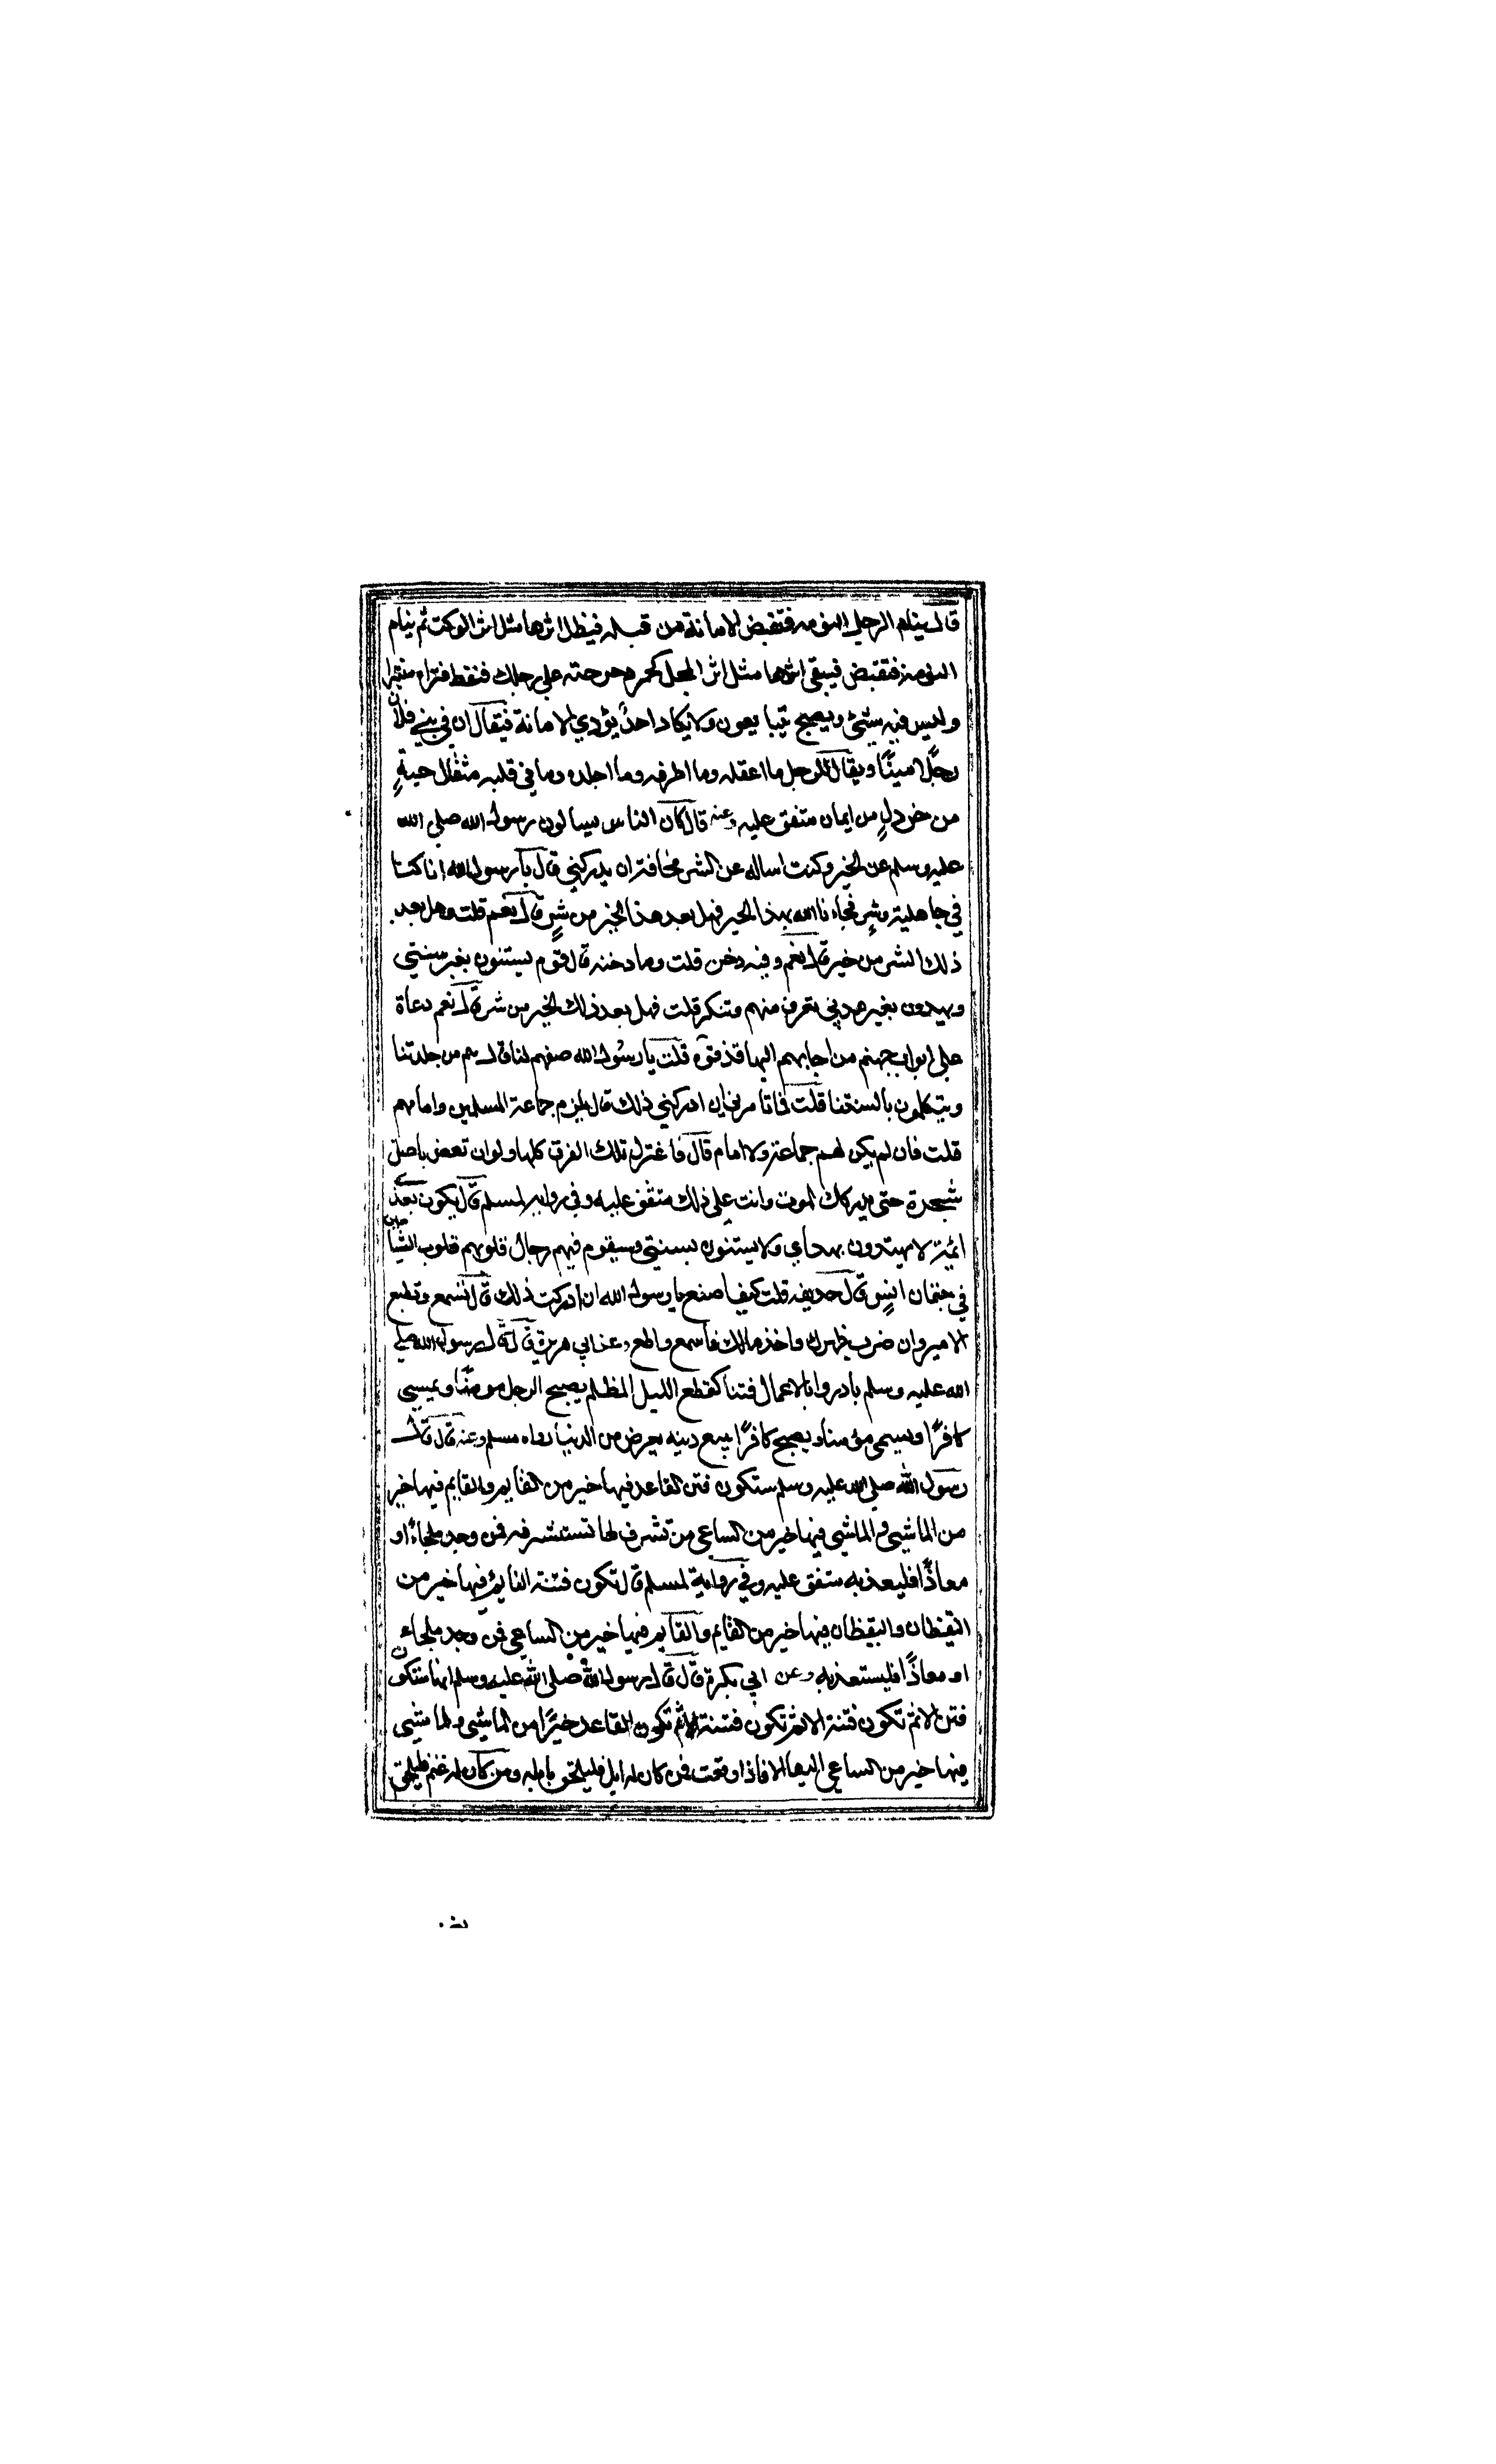 قال ينام الرجل النومه فتقبض الامانة من قبله فيظل اثرها مثل اثر الوكت ثم ينام
النومة فتقبض فيبقى اثرها مثل اثر المجل كجمر دحرجته على رجلك فنقط فتراه منتبرا
وليس فيه شئ ويصبح يتبايعون ولا يكاد احدٌ يؤدي الامانة فيقال ان في بني فلان
رجلًا امينًا ويقال للرجل ما اعقله وما اظرفه وما اجلده وما في قلبه مثقال حبةٍ
من خردلٍ من ايمان متفق عليه وعنه قال كان الناس يسالون رسول الله صلى الله
عليه وسلم عن الخير وكنت اساله عن الشر مخافة ان يدركني قال يا رسول الله انا كنا
في جاهلية وشرٍ فجاءنا الله بهذا الخير فهل بعد هذا الخير من شرٍ قال نعم قلت وهل بعد
ذلك الشر من خير قال نعم وفيه دخن قلت وما دخنه قال قوم يستنون بغير سنتي
ويهدون بغير هديي تعرف منهم وتنكر قلت فهل بعد ذلك الخير من شر قال نعم دعاة
على ابواب جهنم من اجابهم اليها قذفوه قلت يا رسول الله صفهم لنا قال هم من جلدتنا
ويتكلمون بالسنتنا قلت فما تامرني ان ادركني ذلك قال تلزم جماعة المسلمين وامامهم
قلت فان لم يكن لهم جماعة ولا امام قال فاعتزل تلك الفرق كلها ولو ان تعض باصل
شجرة حتى يدركك الموت وانت على ذلك متفق عليه وفي رواية لمسلم قال يكون بعدي
ائمة لا يهتدون بهداي ولا يستنون بسنتي وسيقوم فيهم رجال قلوبهم قلوب الشياطين
في جثمان انسٍ قال حذيفه قلت كيف اصنع يا رسول الله ان ادركت ذلك قال تسمع وتطيع
الامير وان ضرب ظهرك واخذ مالك فاسمع واطع وعن ابي هريرة قال قال رسول الله صلى
الله عليه وسلم بادروا بالاعمال فتنا كقطع الليل المظلم يصبح الرجل مومنًا ويمسي
كافرًا ويمسي مؤمنا ويصبح كافرًا يبيع دينه بعرض من الدنيا رواه مسلم وعنه قال قال
رسول الله صلى الله عليه وسلم ستكون فتن القاعد فيها خير من القايم والقايم فيها خير
من الماشي والماشي فيها خير من الساعي من تشرف لها تستشرفه فمن وجد ملجاءً او
معاذًا فليعذ به متفق عليه وفي رواية لمسلم قال تكون فتنة النايم فيها خير من
اليقظان واليقظان فيها خير من القايم والقايم فيها خير من الساعي فمن وجد ملجاء
او معاذًا فليستعذ به وعن ابي بكرة قال قال رسول الله صلى الله عليه وسلم انها ستكون
فتن الا ثم تكون فتنة الا ثم تكون فتنة الا ثم تكون القاعد خيرًا من الماشي والماشي
فيها خير من الساعي اليها الا فاذا وقعت فمن كان له ابل فليلحق بابله ومن كان له غنم فليلحق